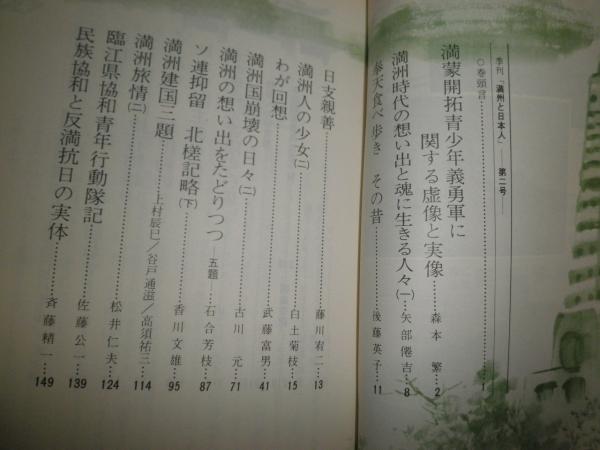 季刊「満州と日本人」——第二号——
○巻頭言……1
満蒙開拓青少年義勇軍に
関する虚像と実像……森本 繁……2
満洲時代の想い出と魂に生きる人々(一)…矢部僊吉……8
奉天食べ歩き その昔……後藤英子……11
日支親善……藤川宥二……13
満洲人の少女(二)……白土菊枝……15
わが回想……武藤富男……41
満洲国崩壊の日々(二)……古川 元……71
満洲の想い出をたどりつつ—五題—…石合芳枝……87
ソ連抑留 北槎記略(下)……香川文雄……95
満洲建国三題……上村辰巳/谷戸通滋/高須祐三……114
満洲旅情(二)……松井仁夫……124
臨江県協和青年行動隊記……佐藤公一……139
民族協和と反満抗日の実体……斉藤精一……149